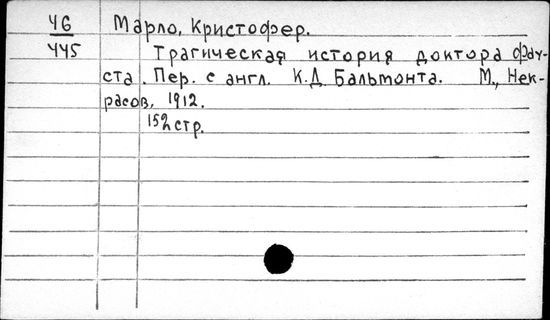 46 Марло, Кристофер.
445 Трагическая история доктора Фау-
ста. Пер. с англ. К.Д. Бальмонта. М., Нек-
расов, 1912.
152 стр.